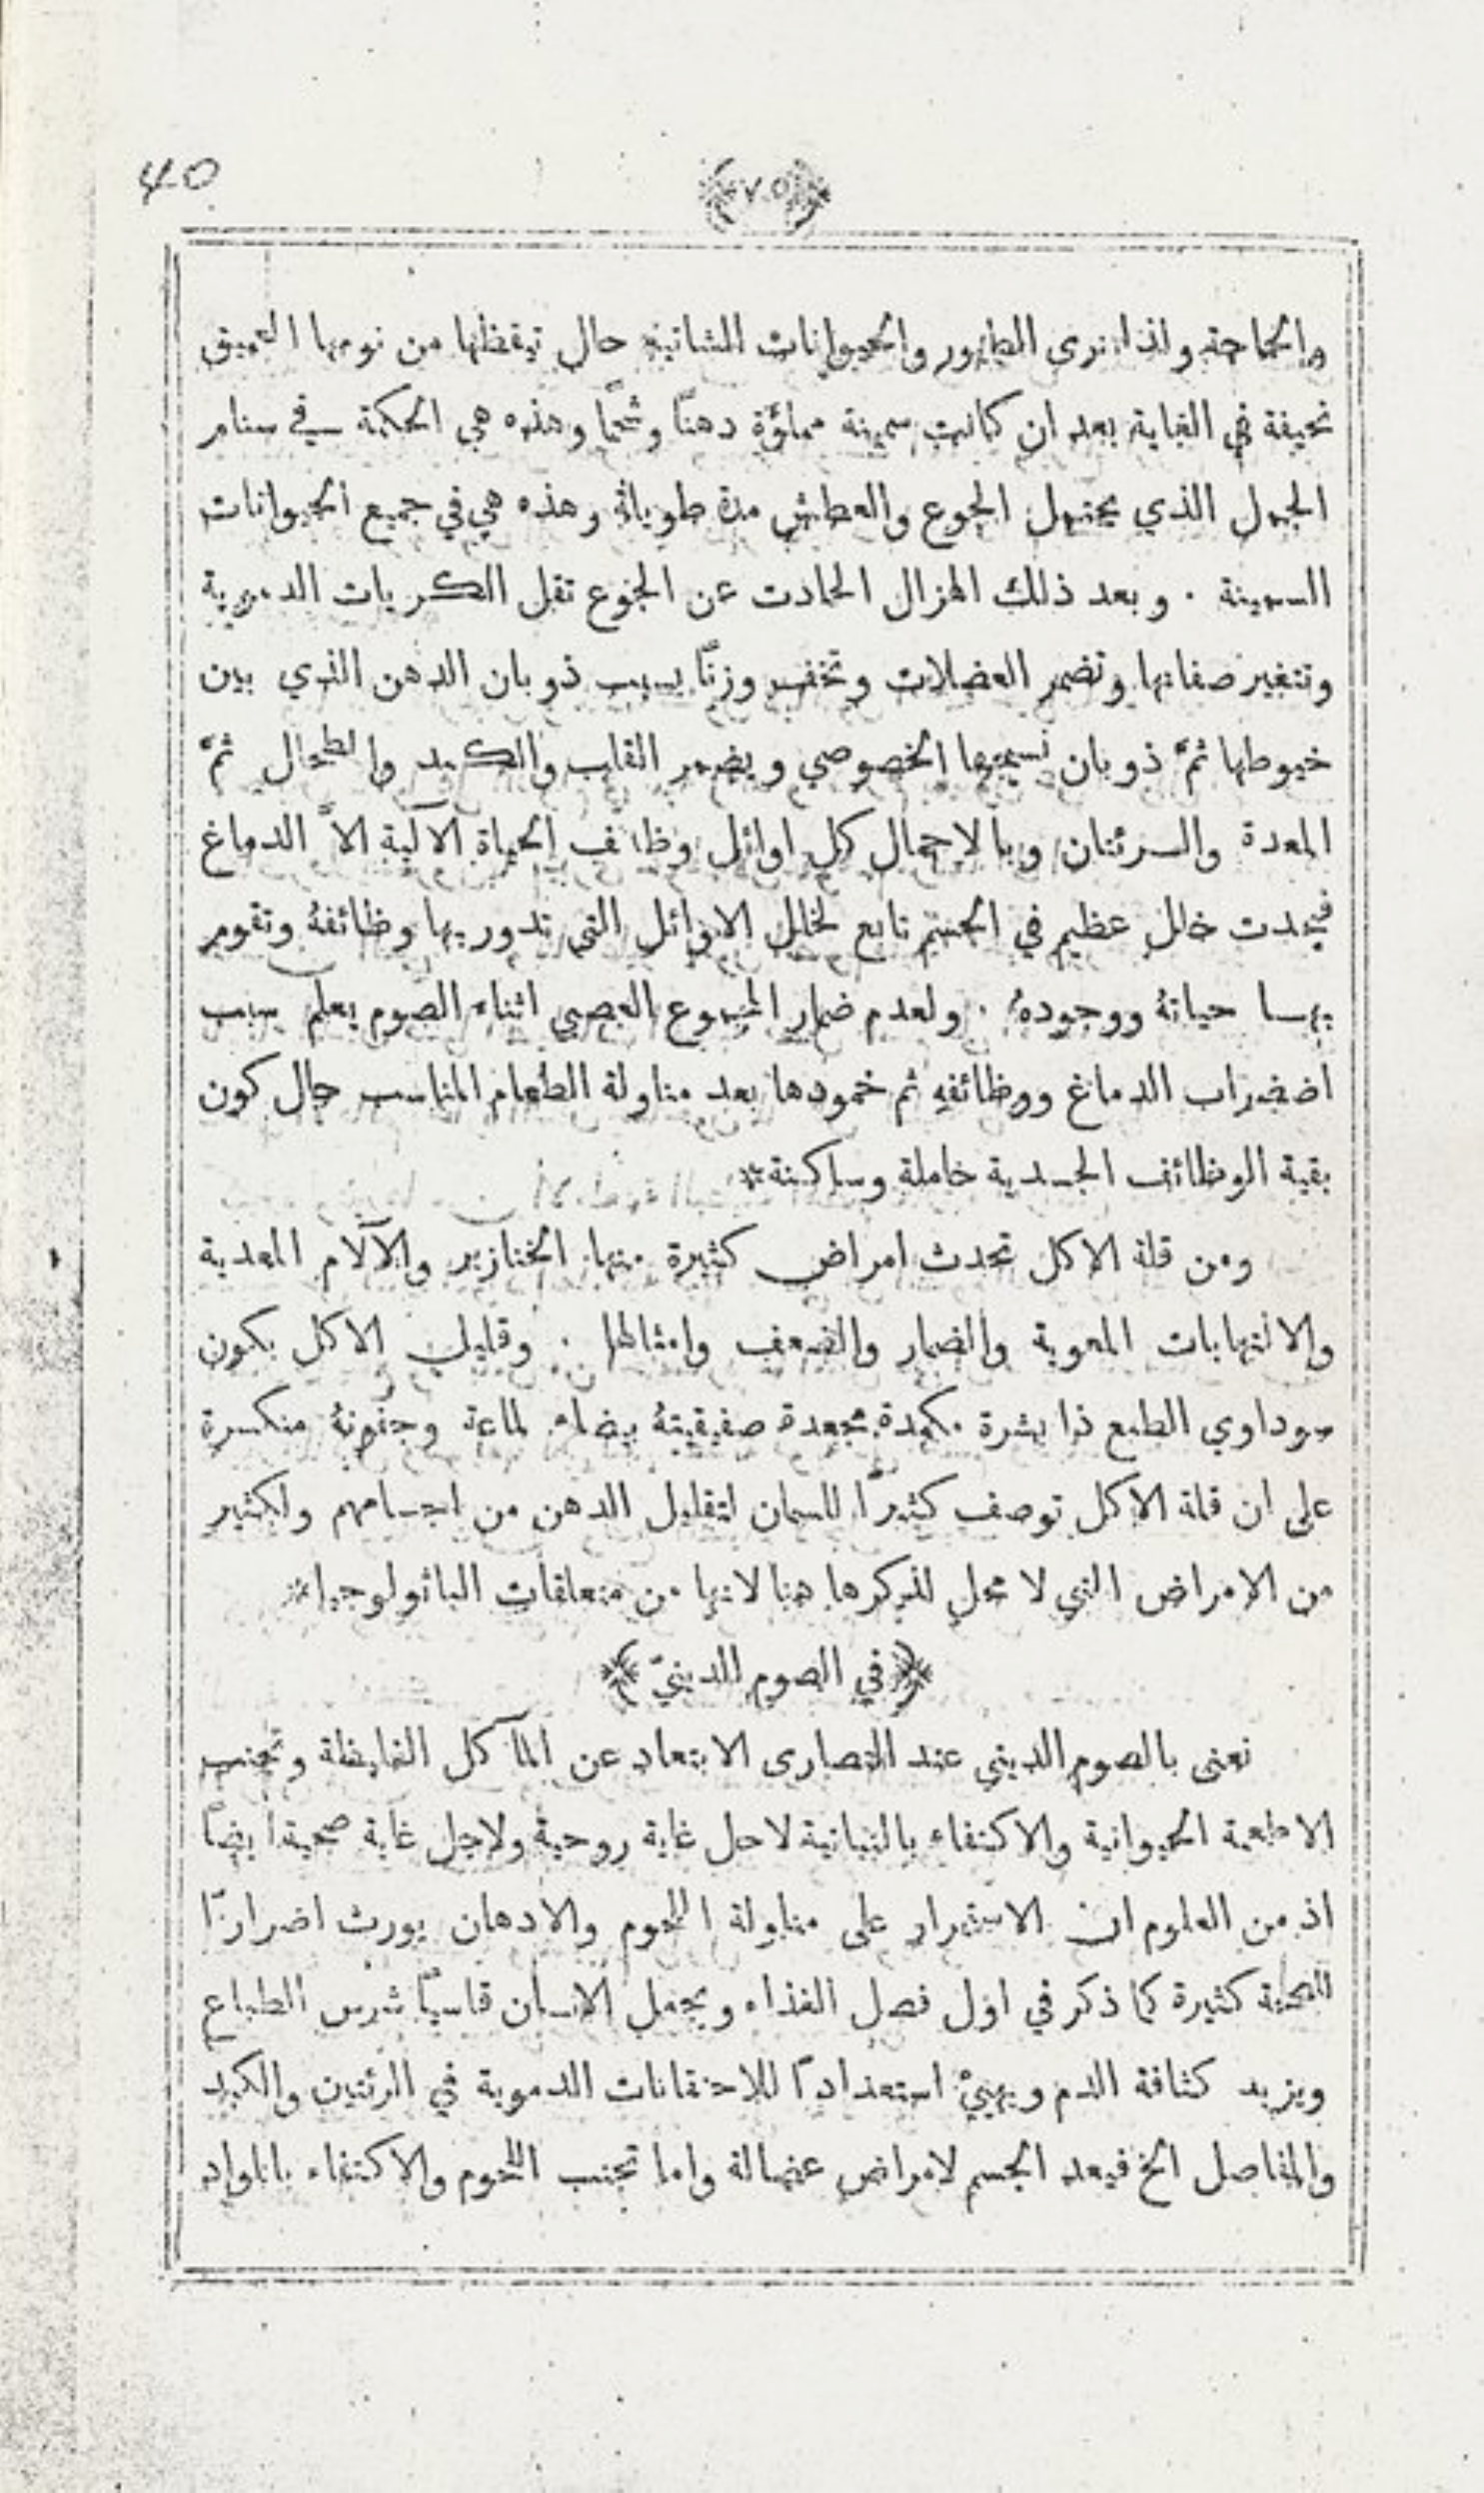 40
﴿٧٥﴾
والحاجة ولذا نرى الطيور والحيوانات الشاتية حال تيقظها من نومها العميق
نحيفة في الغاية بعد ان كانت سمينة مملؤة دهنًا وشحمًا وهذه هي الحكمة في سنام
الجمل الذي يحتمل الجوع والعطش مدة طويلة وهذه هي في جميع الحيوانات
السمينة . وبعد ذلك الهزال الحادث عن الجوع تقل الكريات الدموية
وتتغير صفاتها وتضمر العضلات وتخف وزنًا بسبب ذوبان الدهن الذي بين
خيوطها ثمَّ ذوبان نسيجها الخصوصي ويضمر القلب والكبد والطحال ثمَّ
المعدة والرئتان وبالاجمال كل اوائل وظائف الحياة الآلية الاَّ الدماغ
فيحدث خلل عظيم في الجسم تابع لخلل الاوائل التي تدور بها وظائفهُ وتقوم
بها حياتهُ ووجودهُ . ولعدم ضمار المجموع العصبي اثناء الصوم يعلم سبب
اضضراب الدماغ ووظائفهِ ثم خمودها بعد مناولة الطعام المناسب حال كون
بقية الوظائف الجسدية خاملة وساكنة*
ومن قلة الاكل تحدث امراض كثيرة منها الخنازير والآلام المعدية
والالتهابات المعوية والضمار والضعف وامثالها . وقليل الاكل يكون
سوداوي الطبع ذا بشرة مكمدة مجعدة صفيقيتهُ بيضاء لماعة وجفونهُ منكسرة
على ان قلة الاكل توصف كثيرًا للسمان لتقليل الدهن من اجسامهم ولكثير
من الامراض التي لا محل لذكرها هنا لانها من متعلقات الباثولوجيا*
﴿في الصوم الدينيّ﴾
نعني بالصوم الديني عند النصارى الابتعاد عن المآكل الغليظة وتجنب
الاطعمة الحيوانية والاكتفاء بالنباتية لاجل غاية روحية ولاجل غاية صحية ايضًا
اذ من العلوم ان الاستمرار على مناولة اللحوم والادهان يورث اضرارًا
للصحة كثيرة كما ذكر في اول فصل الغذاء ويجعل الانسان قاسيًا شرس الطباع
ويزيد كثافة الدم ويهييْ استعدادًا للاحتقانات الدموية في الرئتين والكبد
والمفاصل الخ فيعد الجسم لامراض عضالة واما تجنب اللحوم والاكتفاء بالمواد